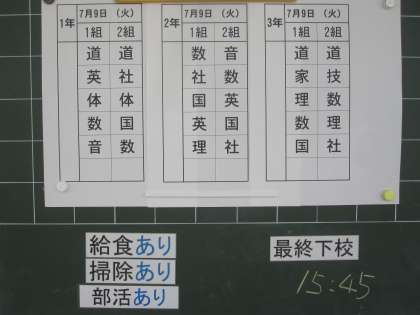 1年 7月9日 (火)
1組 2組
道 道
英 社
体 体
数 国
音 数
2年 7月9日 (火)
1組 2組
数 音
社 数
国 英
英 国
理 社
3年 7月9日 (火)
1組 2組
道 道
家 技
理 数
数 理
国 社
給食あり
掃除あり
部活あり
最終下校
15:45